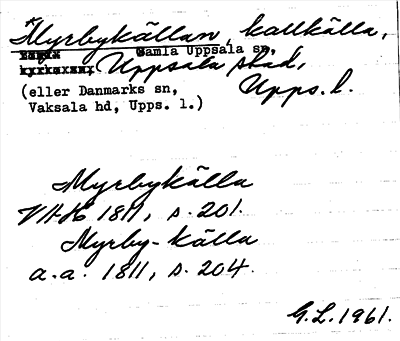 *Myrbykällan, kallkälla,
Gamla Uppsala sn,
Uppsala stad,
Upps. l.
(eller Danmarks sn,
Vaksala hd, Upps. l.)
Myrbykälla
VHAH 1811, s. 201.
Myrby-källa
a.a. 1811, s. 204.
G.L. 1961.